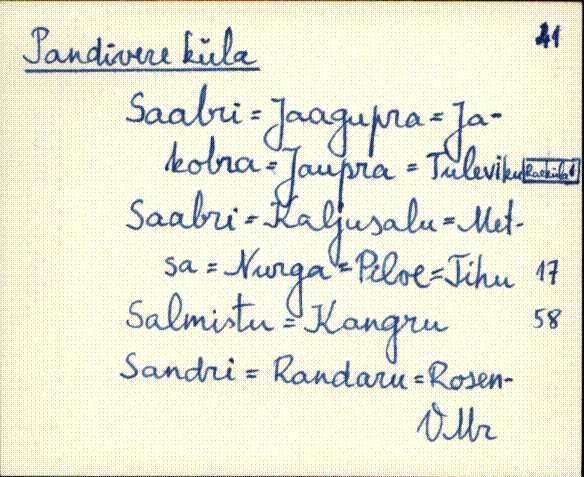 Pandivere küla 41
Saabri = Jaagupra = Ja-
kobra = Jaupra = Tuleviku
Saabri = Kaljusalu = Met-
sa = Nurga = Pilve = Tihu 17
Salmistu = Kangru 58
Sandri = Randaru = Rosen-
VMr